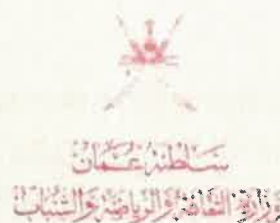 سلطنة عمان
وزارة الثقافة والرياضة والشباب